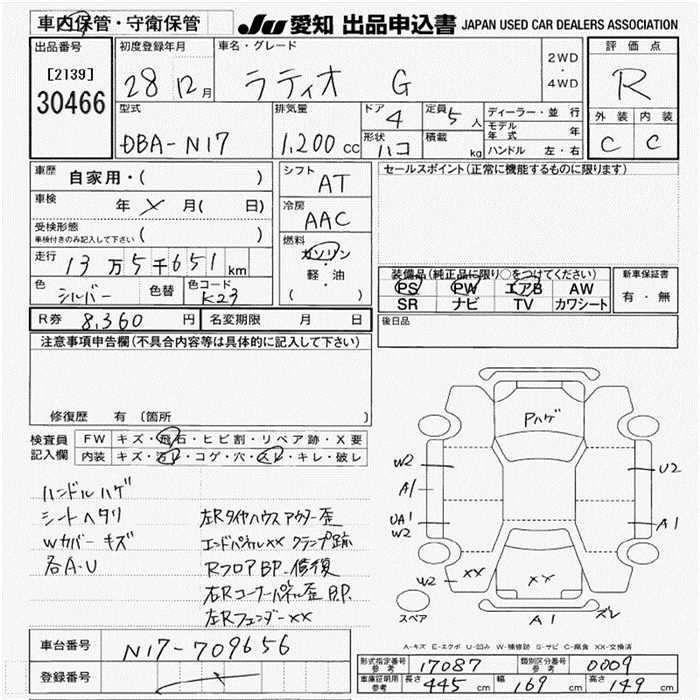 車内保管・守衛保管 JU 愛知 出品申込書 JAPAN USED CAR DEALERS ASSOCIATION
出品番号 初度登録年月 車名・グレード 2WD・4WD 評価点
[2139] 30466 28 12月 ラティオ G R
型式 排気量 ドア 4 定員 5人 ディーラー・並行 外装 内装
DBA-N17 1,200cc 形状 ハコ 積載 kg モデル年式 年 C C
ハンドル 左・右
車歴 自家用・( ) シフト AT セールスポイント(正常に機能するものに限ります)
車検 年 月( 日) 冷房 AAC
受検形態 車検付きのみ記入して下さい ( ) 燃料 ガソリン・軽・油 ( )
走行 13万5千651km 装備品(純正品に限り○をつけてください) 新車保証書
色 シルバー 色替 色コード K23 PS PW エアB AW 有・無
SR ナビ TV カワシート
R券 8,360円 名変期限 月 日 後日品
注意事項申告欄(不具合内容等は具体的に記入して下さい)
修復歴 有 (箇所 )
検査員記入欄 FW キズ・飛石・ヒビ割・リペア跡・X要
内装 キズ・汚レ・コゲ・穴・スレ・キレ・破レ
ハンドルハゲ
シートヘタリ 左Rタイヤハウスアウター歪
Wカバー キズ エンドパネルXX クランプ跡
各A・U RフロアBP.修復
右Rコーナーパネル歪 B.P.
左RフェンダーXX
Pハゲ
W2 U2
A1
UA1 A1
W2
W2 XX XX
スペア A1 ズレ
A-キズ E-エクボ U-凹み W-補修跡 S-サビ C-腐食 XX-交換済
車台番号 N17-709656
登録番号
形式指定番号 参考 17087 類別区分番号 参考 0009
車庫証明用 参考 長さ 445cm 幅 169cm 高さ 149cm